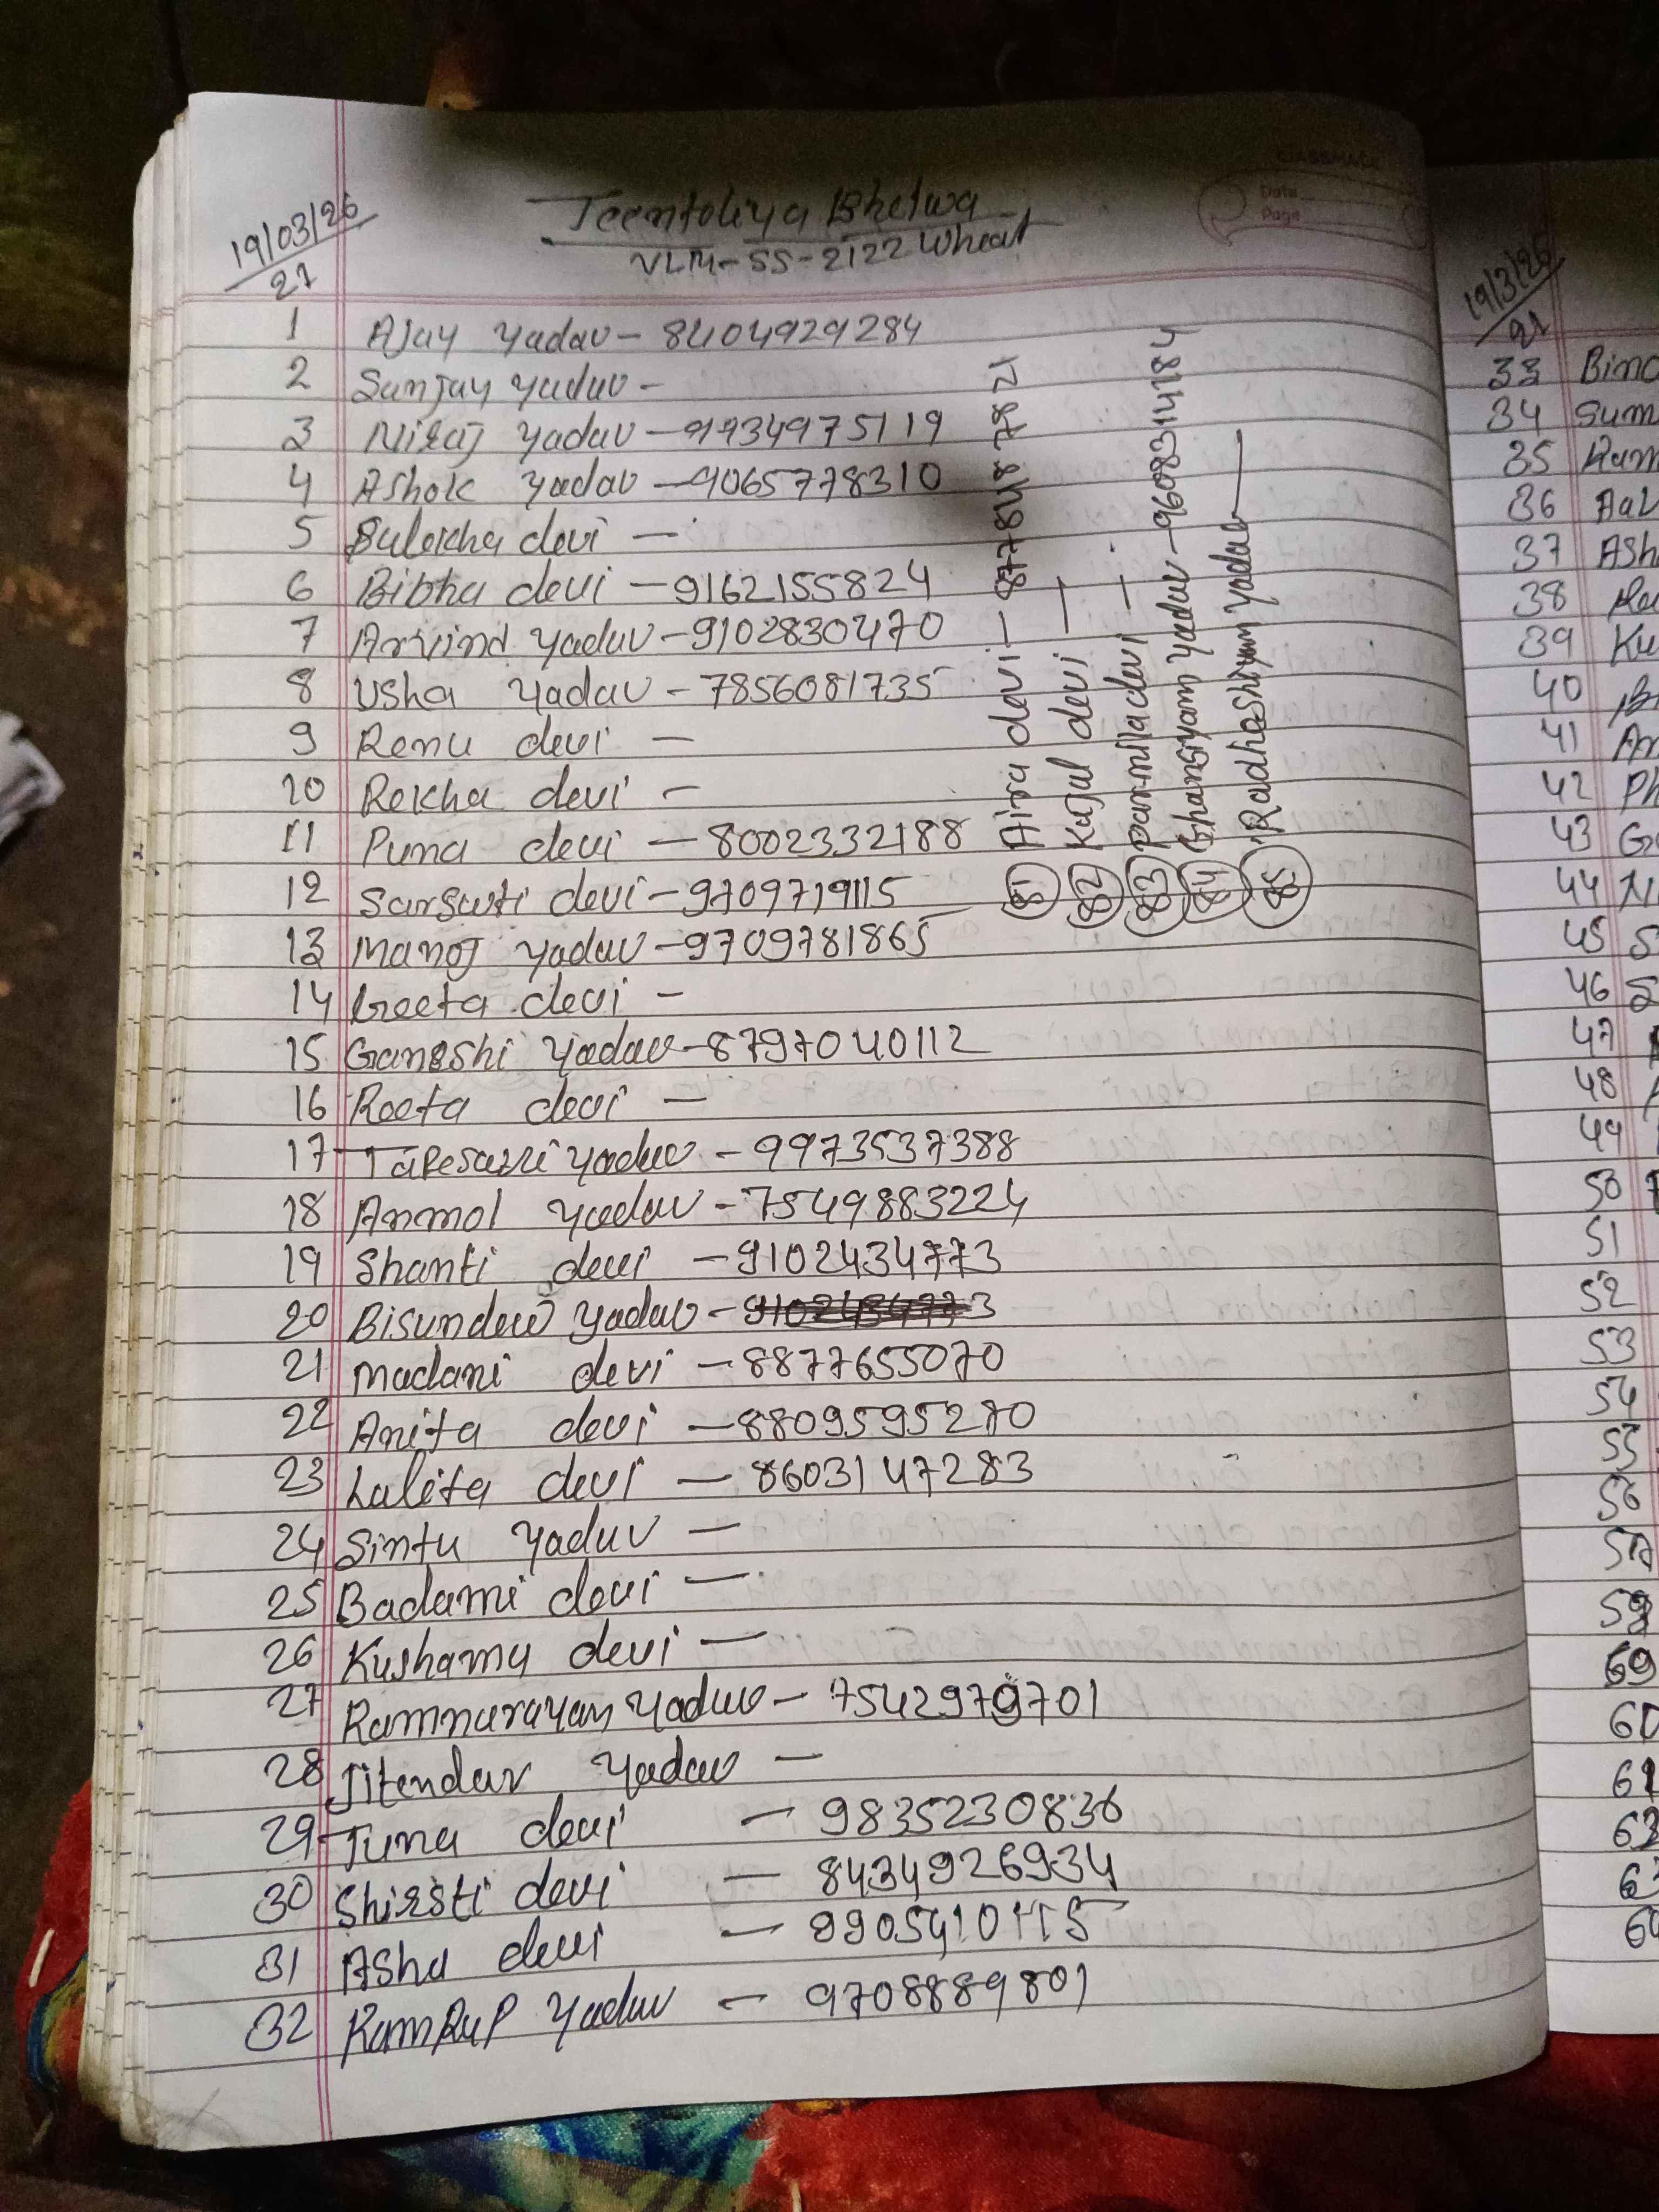 CLASSMATE
Date
Page
19/03/26
21
Teentoliya Bhelwa
VLM-SS-2122 Wheat
1 Ajay Yadav - 8404929284
2 Sanjay Yadav -
3 Niraj Yadav - 9934975119
4 Ashok Yadav - 9065778310
5 Sulekha devi -
6 Bibha devi - 9162155824
7 Arvind Yadav - 9102830470
8 Usha Yadav - 7856081735
9 Renu devi -
10 Rekha devi -
11 Puna devi - 8002332188
12 Sarswti devi - 9709719115
13 Manoj Yadav - 9709781865
14 Geeta devi -
15 Ganeshi Yadav - 8797040112
16 Reeta devi -
17 Yadav - 9973537388
18 Anmol Yadav - 7549883224
19 Shanti devi - 9102434773
20 Bisundew Yadav - 9102434773
21 Madani devi - 8877655070
22 Anita devi - 8809595270
23 Lalita devi - 8603147283
24 Sintu Yadav -
25 Badami devi -
26 Kushama devi -
27 Ramnarayan Yadav - 7542979701
28 Jitendar Yadav -
29 Tuna devi - 9835230836
30 Shirsti devi - 8434926934
31 Asha devi - 9905410115
32 RamRup Yadav - 9708889801
81 devi - 8778487821
82 Kajal devi -
83 Parmila devi -
84 Ghansiyam Yadav - 9608314184
85 Radheshiyam Yadav -
19/3/26
21
33
34
35
36
37
38
39
40
41
42
43
44
45
46
47
48
49
50
51
52
53
54
55
56
57
58
69
60
61
62